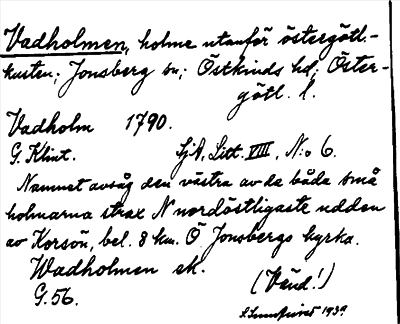 Vadholmen, holme utanför östergötl.-
kusten; Jonsberg sn; Östkinds hd; Öster-
götl. l.
Vadholm 1790.
G. Klint. SjA, Litt. VIII, N:o 6.
Namnet avsåg den västra av de båda små
holmarna strax N nordöstligaste udden
av Korsön, bel. 8 km. Ö Jonsbergs kyrka.
Wadholmen ek.
G. 56. (Vänd!)
1939